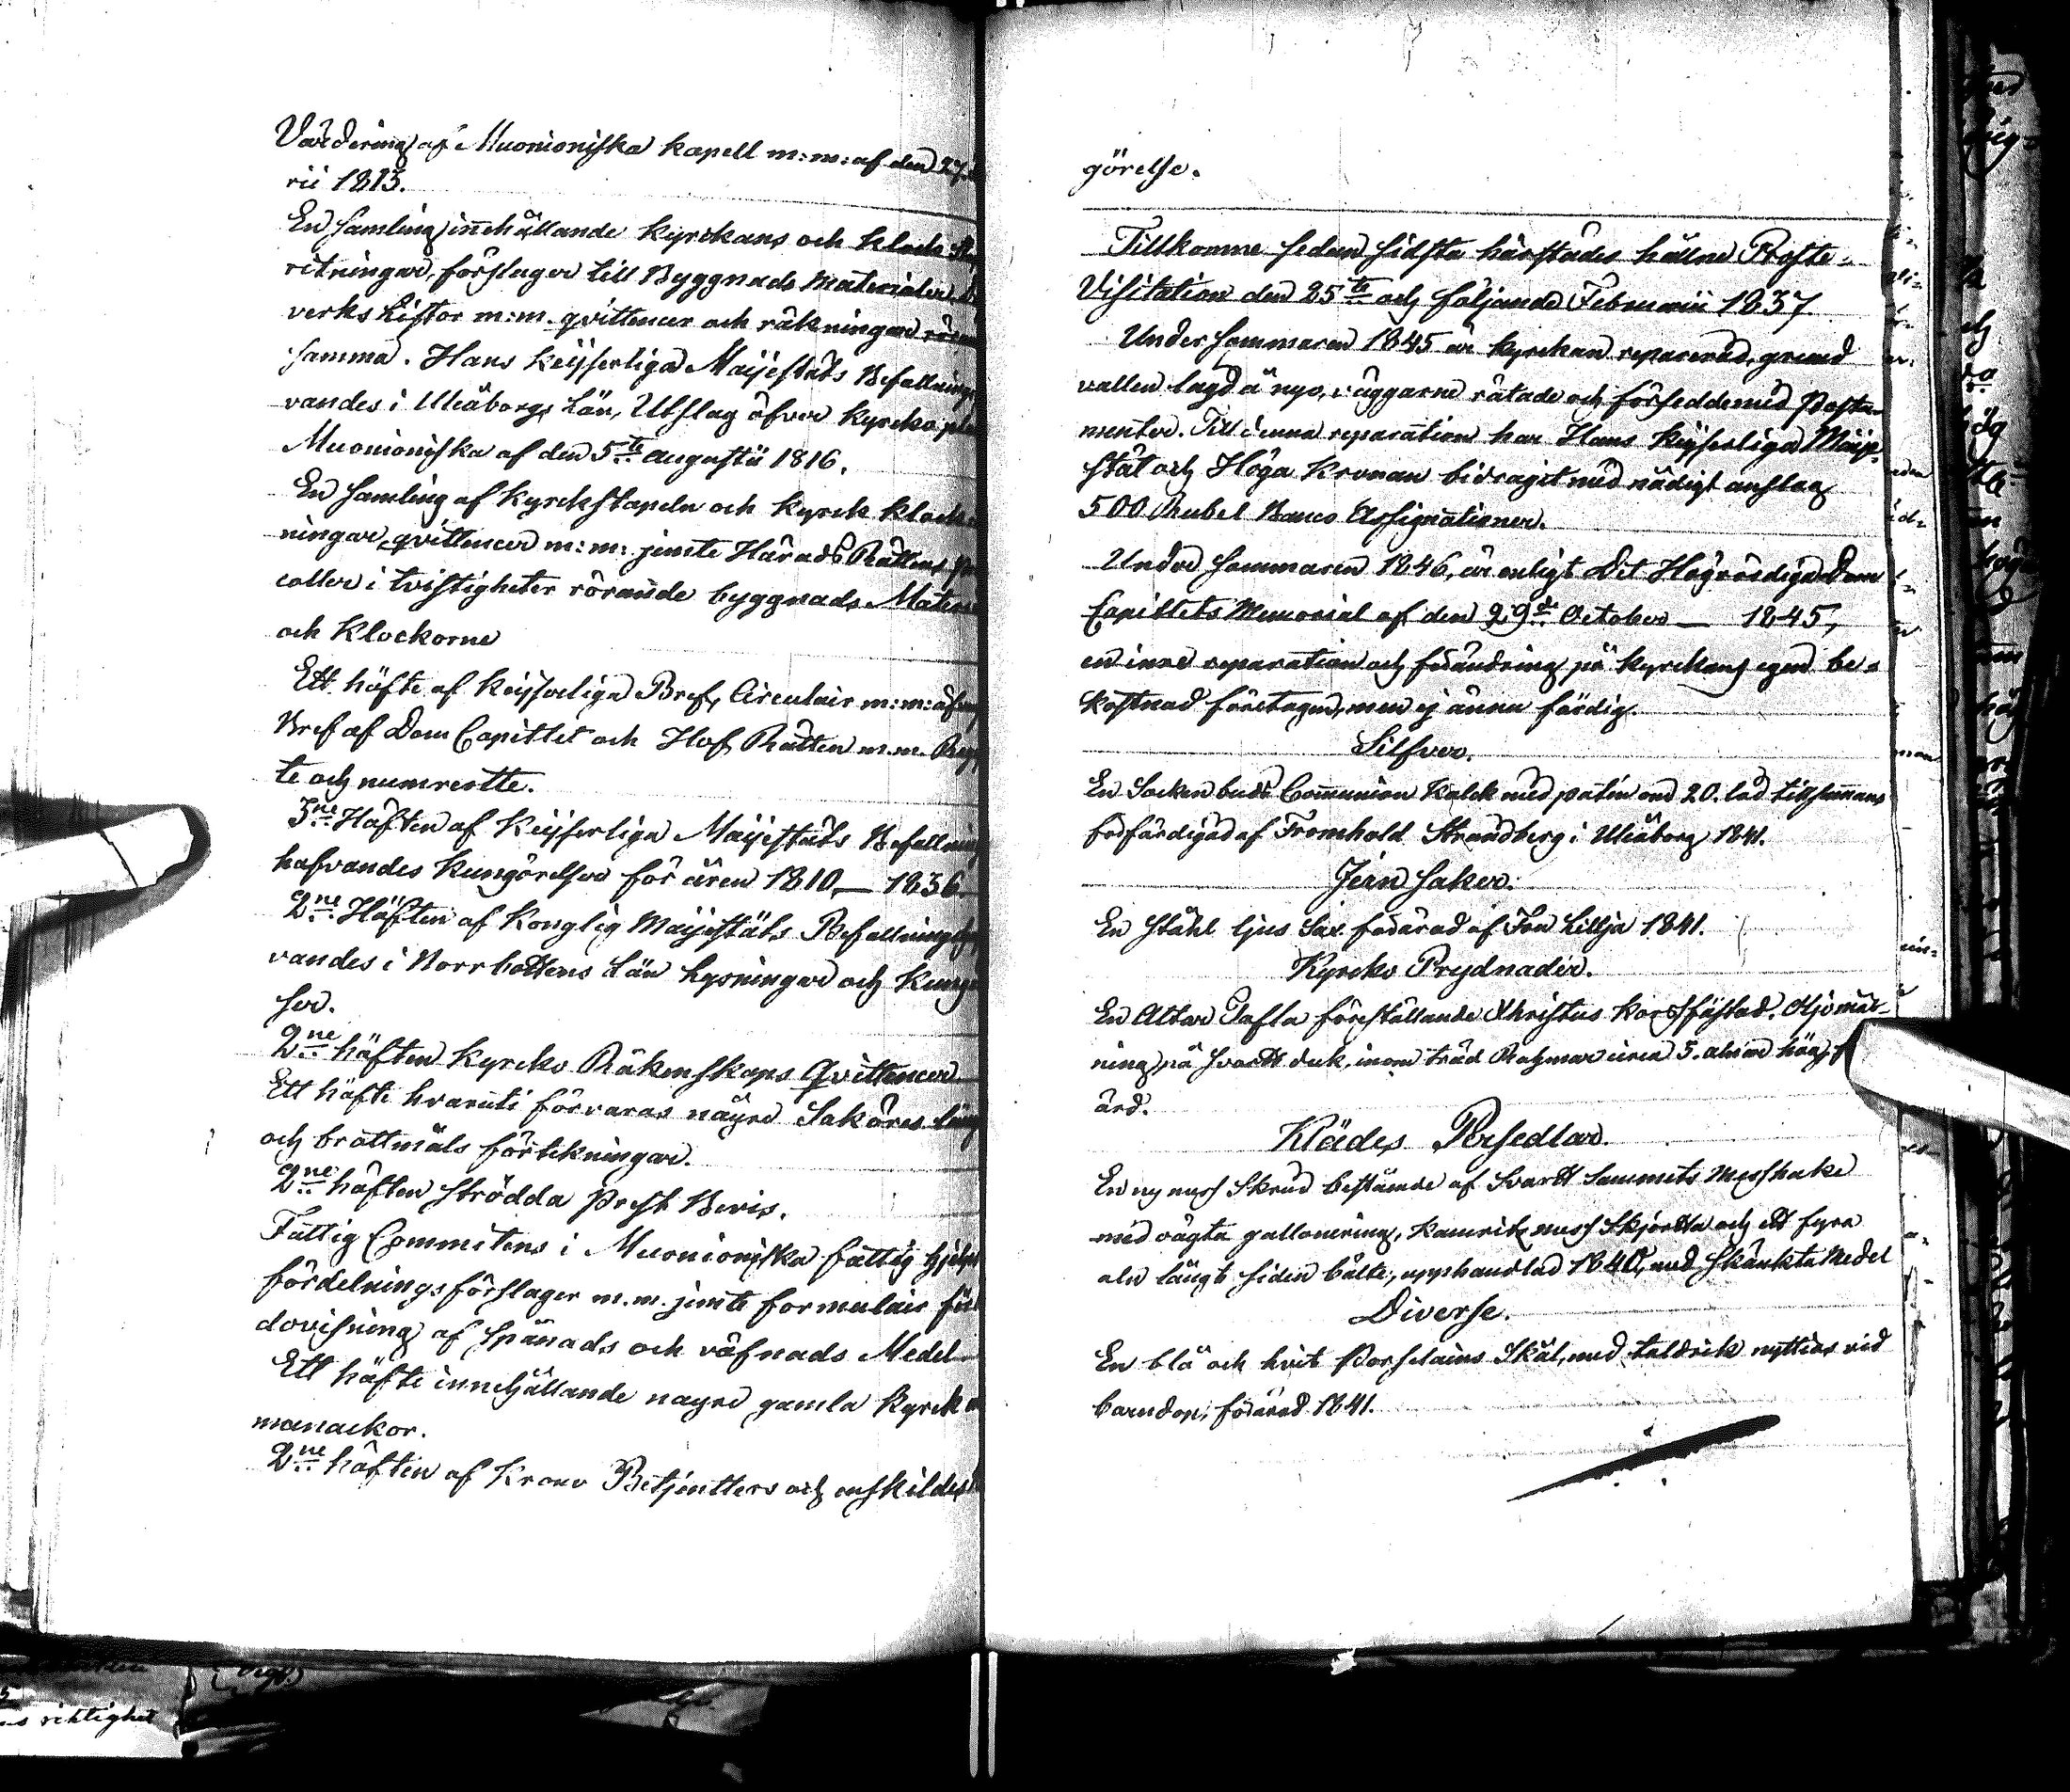 Värdering af Muonioniska kapell m:m: af den 27
rii 1813.
En samling innehållande Kyrckans och Klock
ritningar, förslager till Byggnads Materialier
verks Listor m:m. qvittencer och räkningar
samma. Hans Keijserliga Maijestäts Befallnings
vandes i Uleåborgs Län, Utslag öfver Kyrcko
Muonioniska af den 5te Augustii 1816.
En samling af Kyrckstapeln och Kyrck Klock
ningar, qvittencer m:m: jemte Härads Rättens
coller i tvistigheter rörande byggnads Mater
och Klockorne
Ett häfte af Keijserliga Bref, Circulair m:m:
Bref af Dom Capitlet och Hof Rätten m.m.
te och numrerte.
3ne Häften af Keijserliga Maijestäts Befallning
hafvandes Kungörelser för åren 1810,— 1836.
2ne Häften af Konglig Maijestäts Befallnings
vandes i Norrbottens Län Lysningar och Kungö
ser.
2ne häften Kyrcko Räkenskaps Qvittencer
Ett häfte hvaruti förvaras någre Saköres läng
och brottmåls förtekningar.
2ne häften strödda Prest Bevis.
Fattig Commitens i Muonioniska fattig hjelps
fördelnings förslager m.m. jemte formulair
dovisning af Spånads och väfnads Medel
Ett häfte innehållande nagre gamla Kyrck
manackor.
2ne häften af Krono Betjentters och enskildes
görelse.
Tillkomne sedan sidsta härstädes hållne Probste-
Visitation den 25te och följande Februarii 1837.
Under Sommaren 1845 är Kyrckan reparerad, grund
vallen lagd å nyo, väggarne rätade och försedde med Posta-
menter. Till denna reparation har Hans Keijserliga Maije-
stät och Höga Kronan bidragit med nådigt anslag
500 Rubel Banco Assignationer.
Under Sommaren 1846, är enligt Det Högvördiga Dom
Capitlets Memorial af den 29de October — 1845,
en inre reparation och förändring på Kyrckans egen be-
kostnad företagen, men ej ännu färdig.
Silfver.
En Sockenbuds Communion Kalck med patin om 20. lod tillsammans
förfärdigad af Fromhold Strandberg i Uleåborg 1841.
Jern saker.
En stähl ljus Sax förärad af Fru Lillja 1841.
Kyrcko Prydnader.
En Altar Tafla föreställande Christus Korssfästad. Oljomål-
ning på svartt duk, inom träd Rahmar circa 3. alnar hög,
ärd.
Klädes Persedlar.
En ny mess Skrud bestående af Svartt Sammets Messhake
med oägta gallonering, Kamriks mess Skjortta och ett fyra
aln långt siden bälte, upphandlad 1840, med skänkta Medel
Diverse.
En blå och hvit Porslains Skål, med taldrick nyttias vid
barndop, förärad 1841.
riktighet